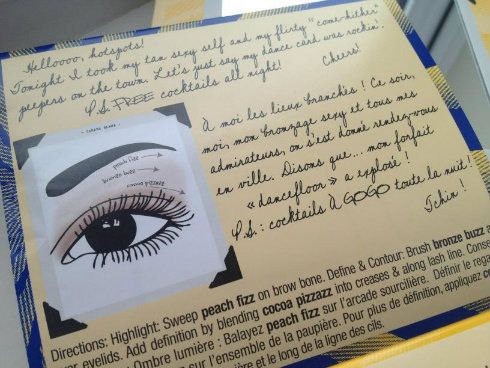 Helloooo, hotspots!
Tonight I took my tan sexy self and my flirty "come-hither"
peepers on the town. Let's just say my dance card was rockin'.
P.S. FREE cocktails all night! Cheers!
À moi les lieux branchés ! Ce soir,
moi, mon bronzage sexy et tous mes
admirateurs, on s'est donné rendez-vous
en ville. Disons que... mon forfait
« dancefloor » a explosé !
P.S. : cocktails À GOGO toute la nuit!
Tchin !
peach fizz
bronze buzz
cocoa pizzazz
Directions: Highlight: Sweep peach fizz on brow bone. Define & Contour: Brush bronze buzz a
er eyelids. Add definition by blending cocoa pizzazz into creases & along lash line. Conse
: Ombre lumière : Balayez peach fizz sur l'arcade sourcilière. Définir le rega
sur l'ensemble de la paupière. Pour plus de définition, appliquez co
ière et le long de la ligne des cils.